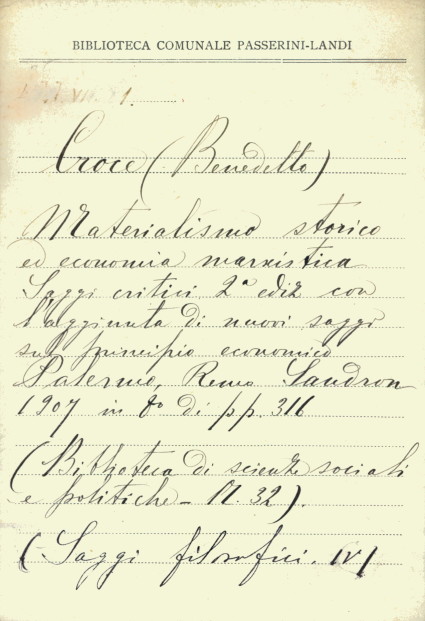 BIBLIOTECA COMUNALE PASSERINI-LANDI
Croce (Benedetto)
Materialismo storico
ed economia marxistica
Saggi critici 2ª ediz con
l'aggiunta di nuovi saggi
sul principio economico
Palermo, Remo Sandron
1907 in 8º di pp. 316
(Biblioteca di scienze sociali
e politiche - N. 32).
(Saggi filosofici. IV)